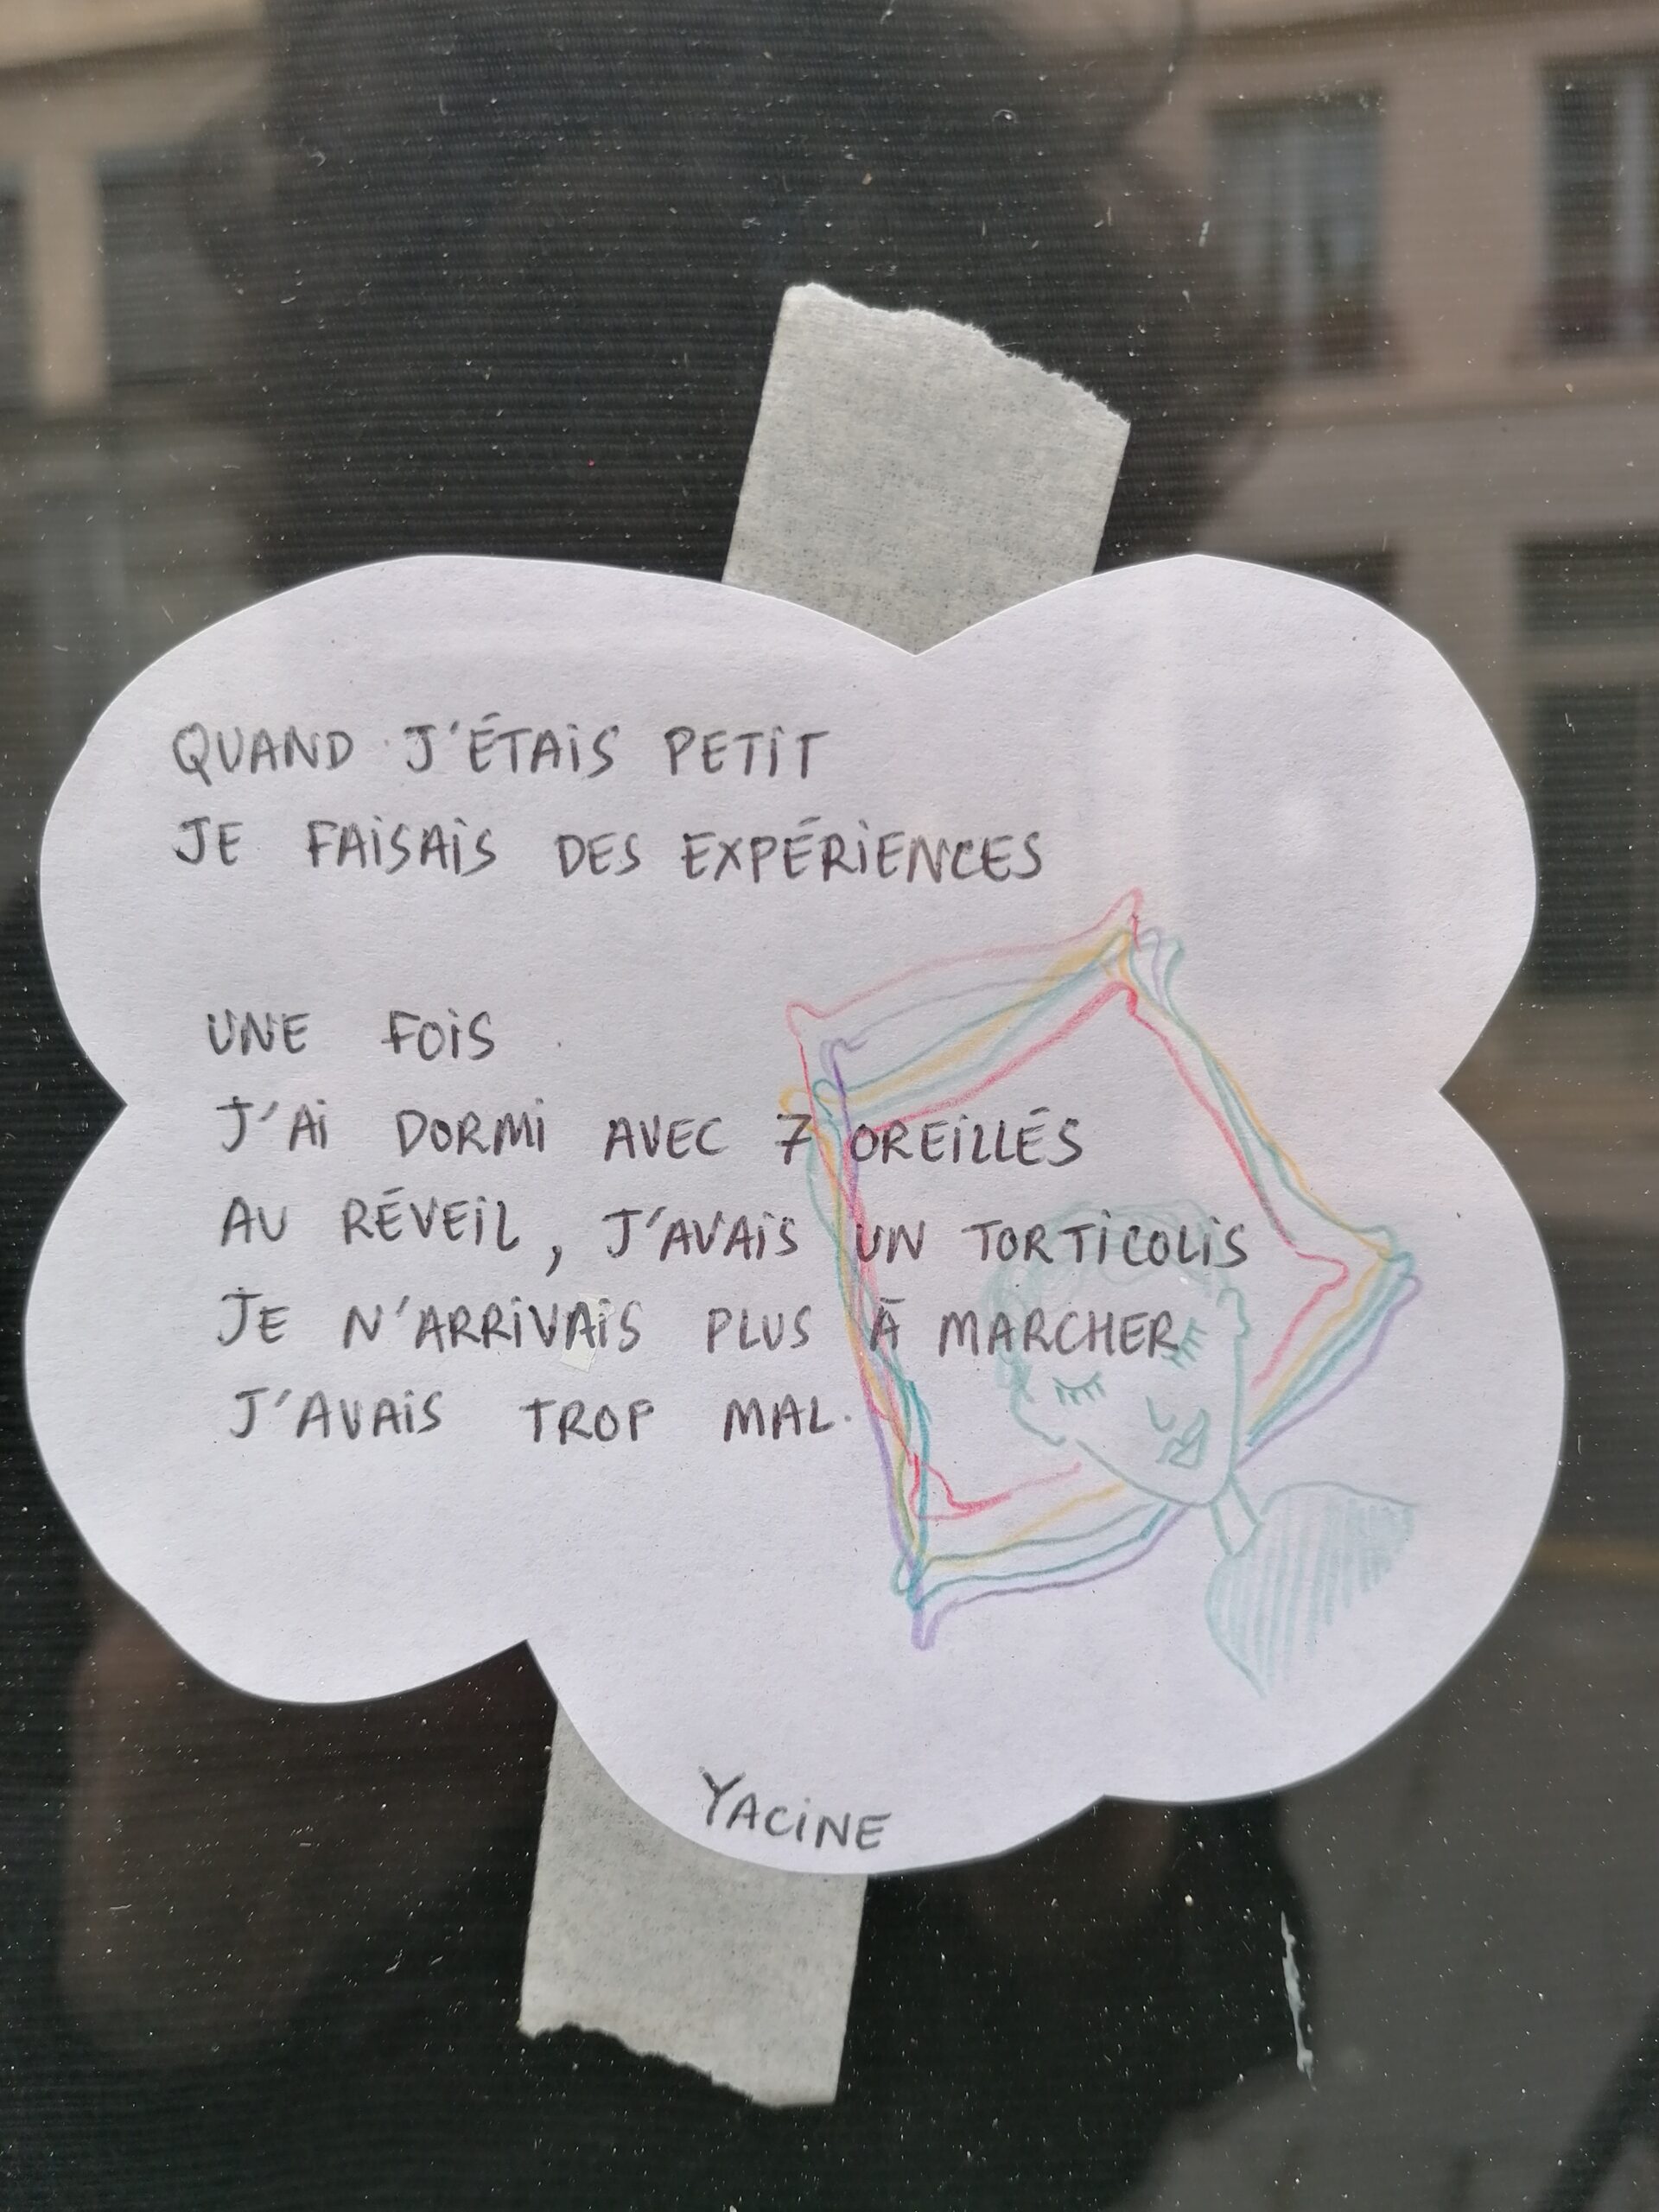 QUAND J'ÉTAIS PETIT
JE FAISAIS DES EXPÉRIENCES
UNE FOIS
J'AI DORMI AVEC 7 OREILLÉS
AU RÉVEIL, J'AVAIS UN TORTICOLIS
JE N'ARRIVAIS PLUS À MARCHER
J'AVAIS TROP MAL.
YACINE